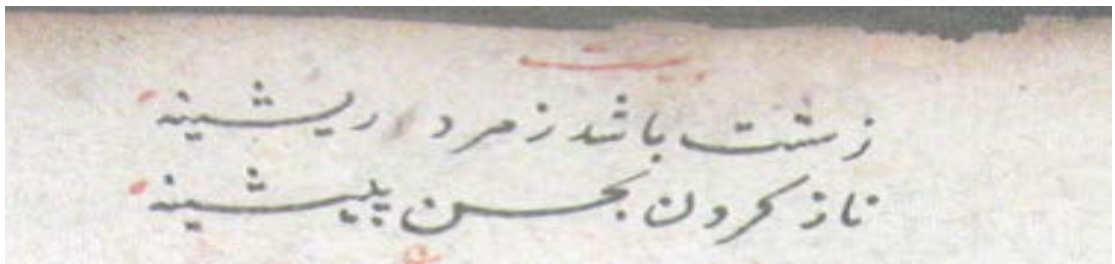 بیت
زشت باشد ز مرد ریشینه
ناز کردن بحسن پیشینه